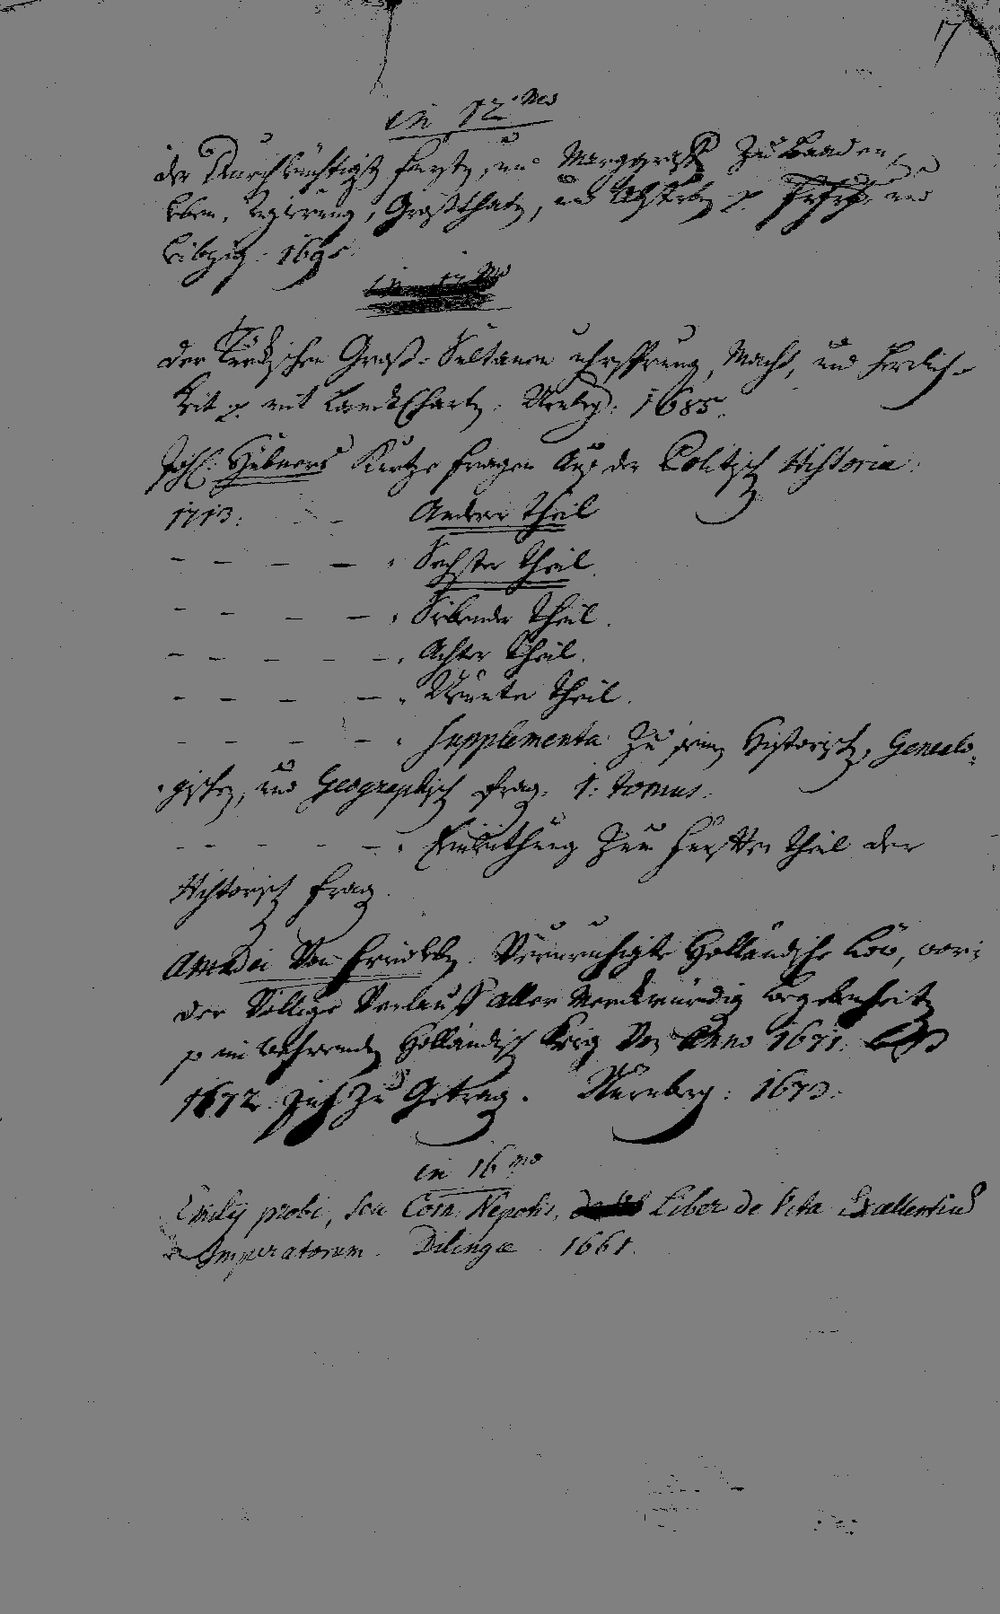 17
in 12mo
der Durchleuchtigst fürsten, und Marggraffen Zu Baaden,
Leben, Regierung, Großthaten, und Absterben p. und
Leibzig: 1695.
Der Türckischen Groß-Sultanen uhrsprung, Macht, und Herrlich-
keit p. mit Landcharten. Nürnberg: 1685.
Joh: Hübners Kurtze fragen Aus der Politisch Historia:
1713: - Ander Theil
- - - - Sechster Theil.
- - - - Sibender Theil.
- - - - - Achter Theil.
- - - - - Neunte Theil.
- - - - - Supplementa Zu Historisch, Genealo-
gischen, und Geographisch frag. 1: tomus.
- - - - - Einleithung Zum Theil der
Historisch frag.
Amadei Von Fridtleben Verunruhigte Holländische Löw, oder
Der Völlige Verlauff aller Merckwürdig begebenheiten
so im Wehrenden Holländisch Krieg Von Anno 1671.
1672. sich Zu Getrag. Nürnberg: 1673.
in 16mo
Emilij probi, seu Corn. Nepotis, Liber de Vita Excellentium
Imperatorum. Dilingæ. 1661.